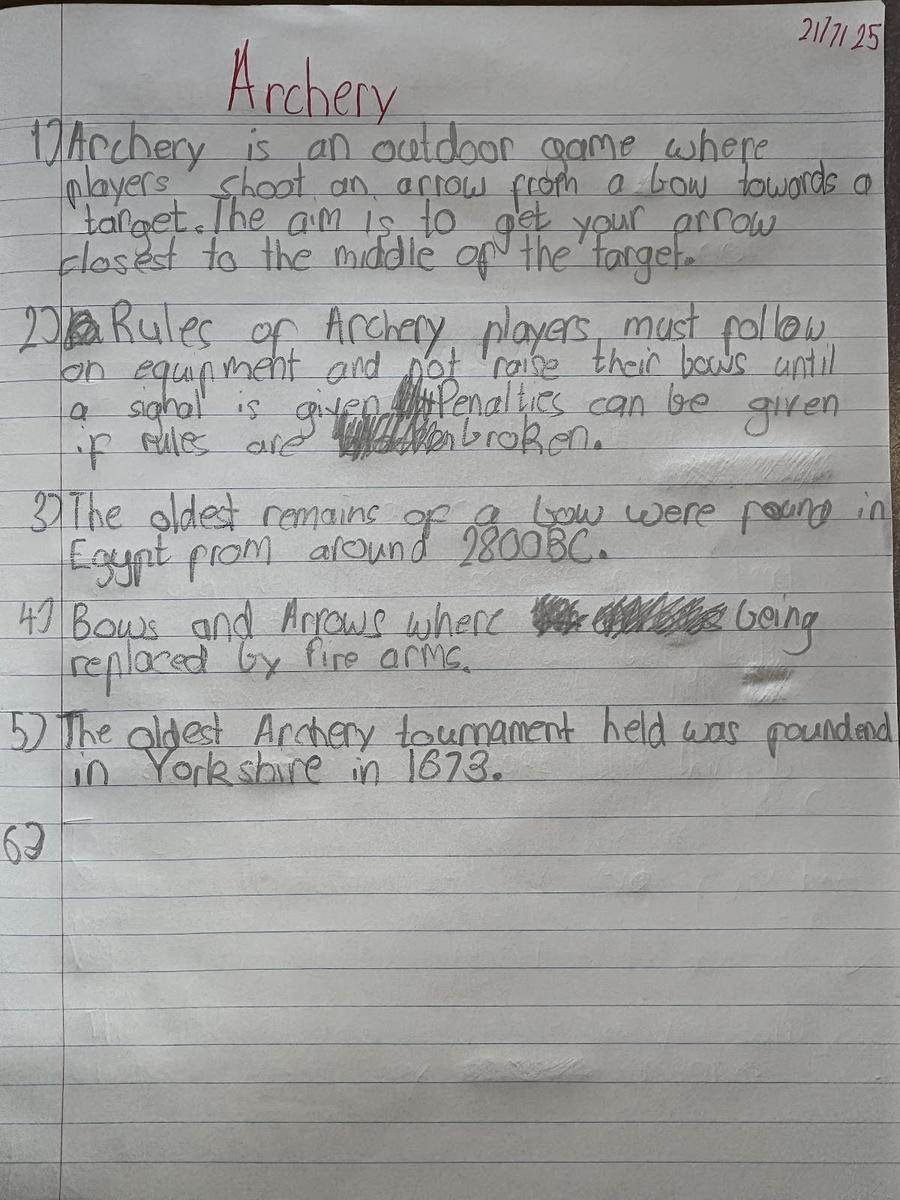 21/7/25
Archery
1) Archery is an outdoor game where
players shoot an arrow from a bow towards a
target. The aim is to get your arrow
closest to the middle of the target.
2) Rules of Archery players must follow
on equipment and not raise their bows until
a signal is given Penalties can be given
if rules are broken.
3) The oldest remains of a bow were found in
Egypt from around 2800BC.
4) Bows and Arrows where being
replaced by fire arms.
5) The oldest Archery tournament held was foundend
in Yorkshire in 1673.
6)